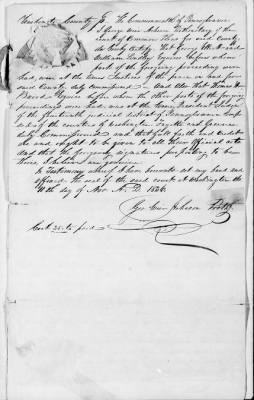 Washington County ss. The Commonwealth of Pennsylvania
I George Prothonotary of the
Court of Common Pleas for said County
do hereby certify that George
William Hindley Esquires before whom
part of the foregoing proceedings were
had, were at the time Justices of the peace in and for
said County duly commissioned And also that Thomas H
Baird Esquire before whom the other part of the foregoing
proceedings were had, was at the time President Judge
of the fourteenth judicial district of Pennsylvania
of the counties of Washington Fayette and Greene
duly Commissioned and that full faith and credit
is and ought to be given to all their official acts
And that the foregoing signatures purporting to be
theirs I believe are genuine
In Testimony whereof I have hereunto set my hand and
affixed the seal of the said court at Washington the
10th day of Nov A.D. 1826.
Johnson Proth
Cost paid